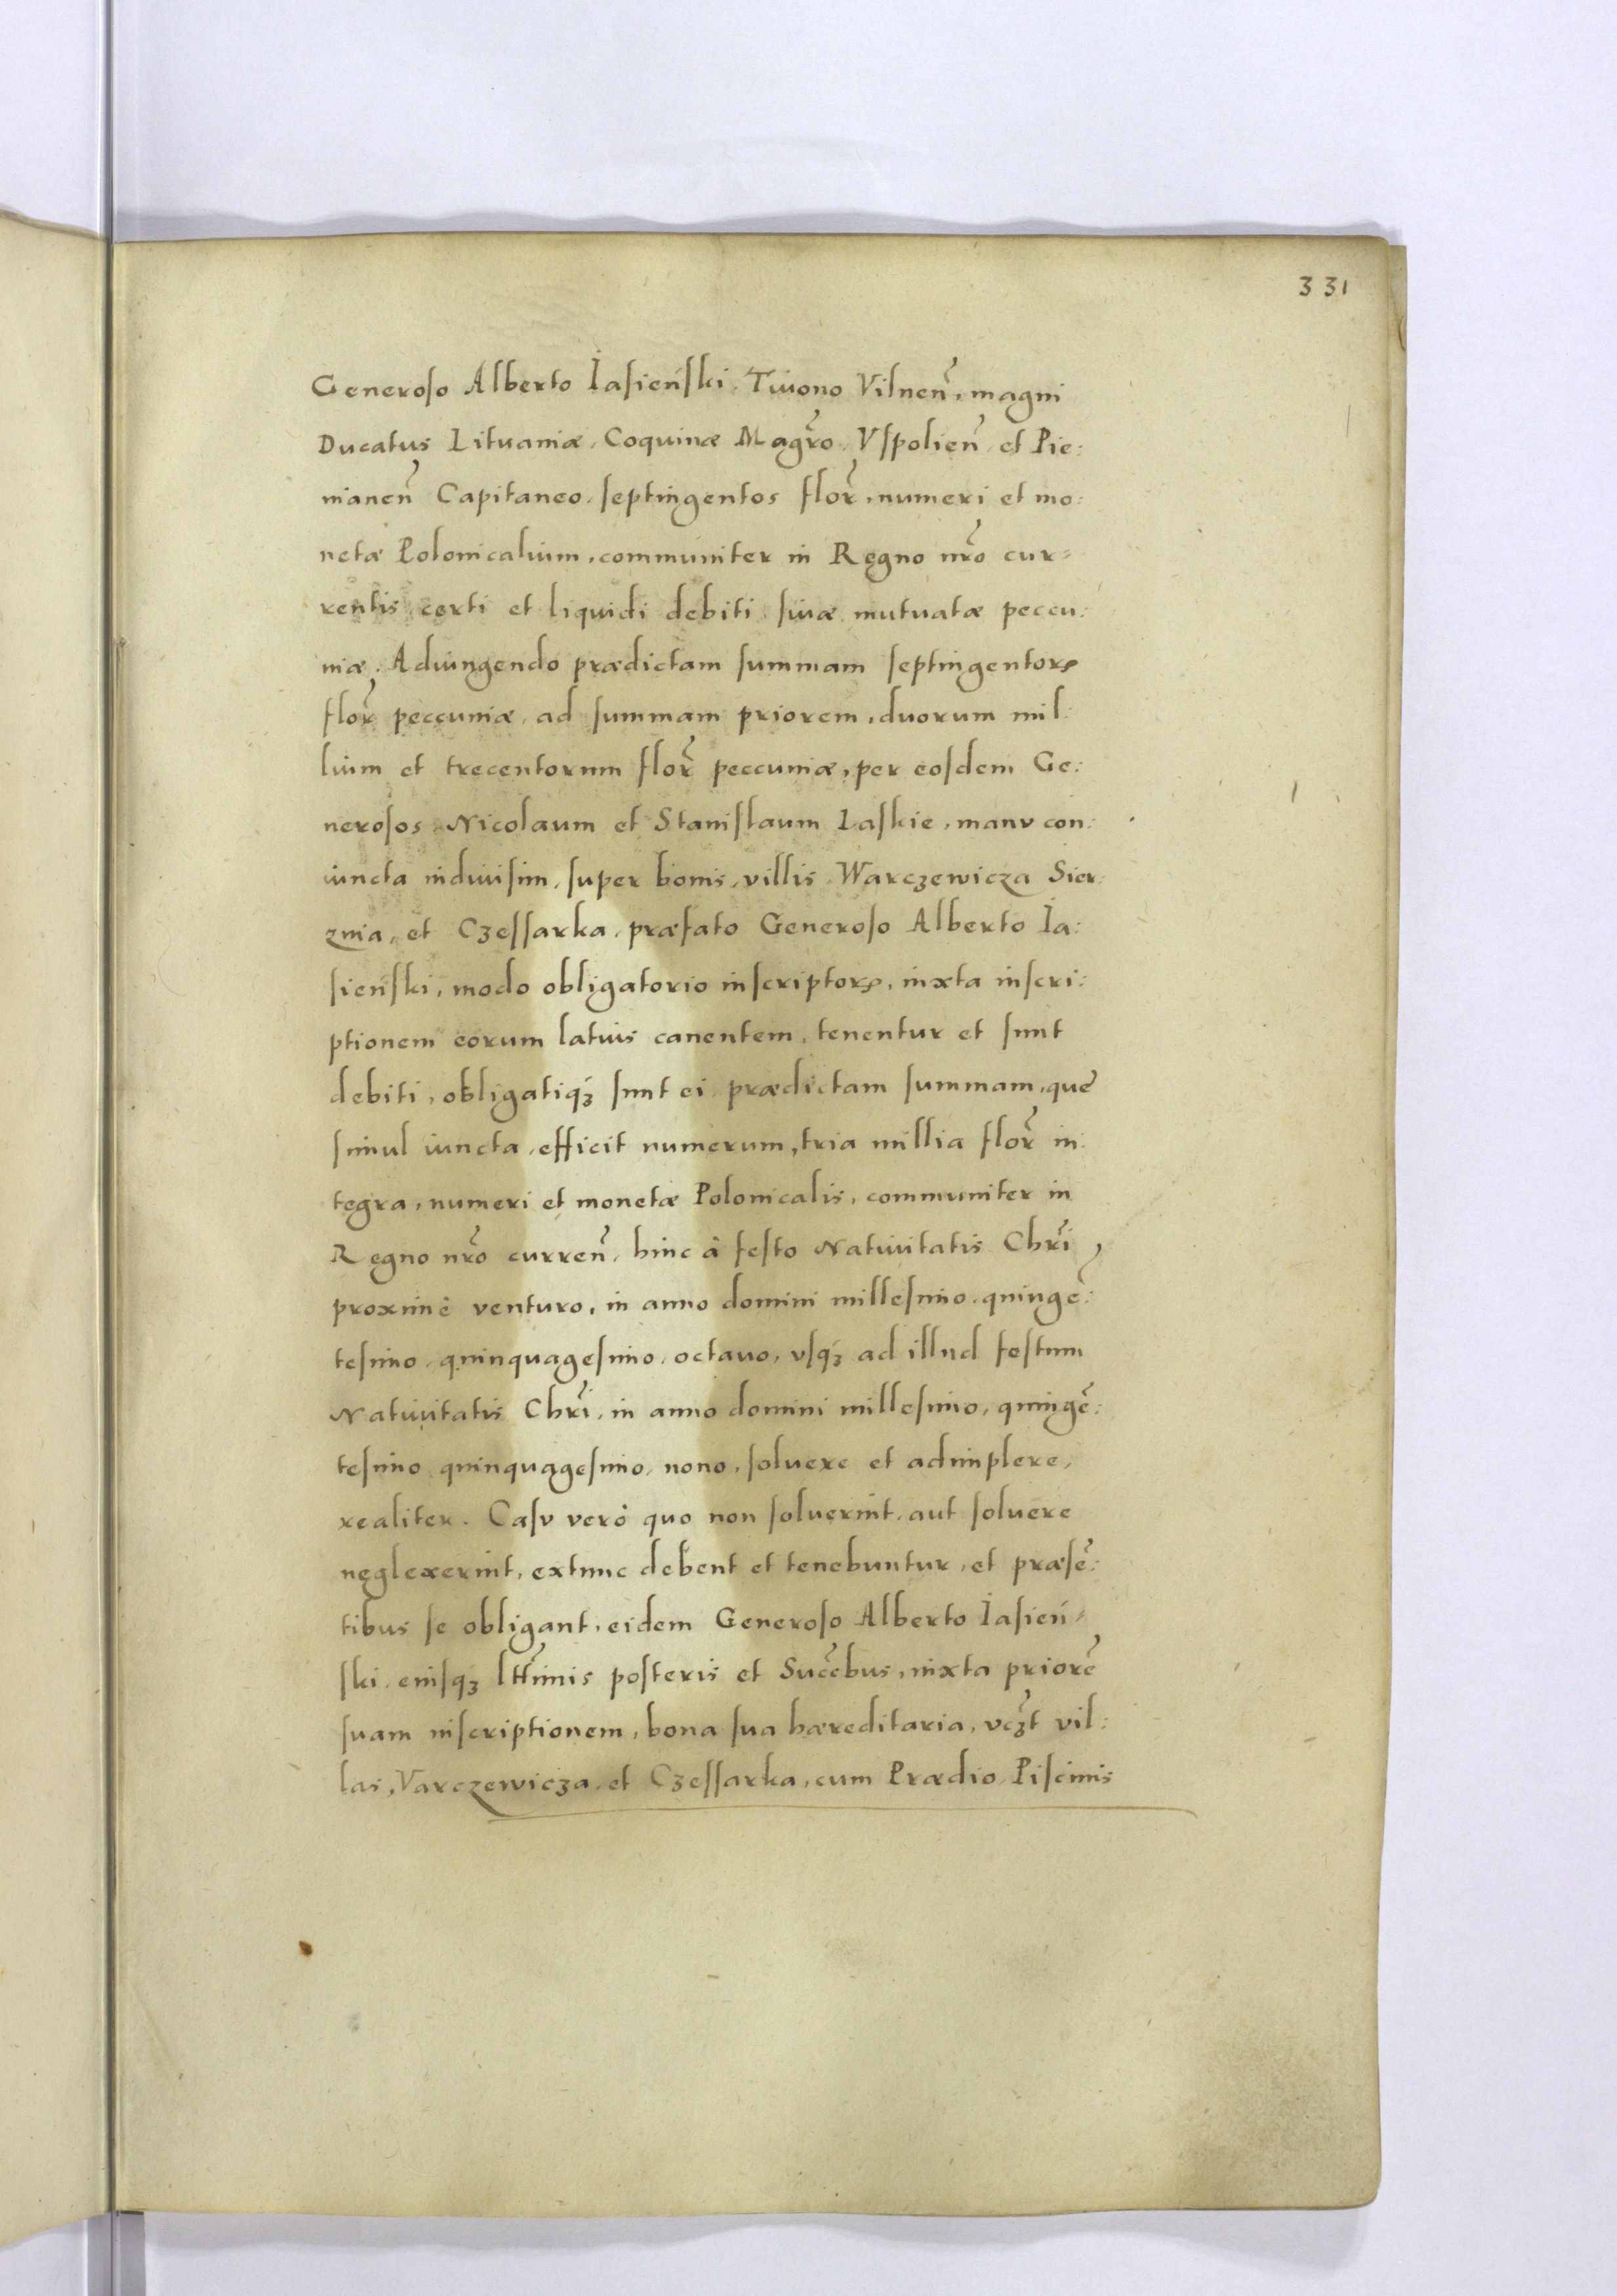 331
Generoso Alberto Iasieński, Tiuono Vilnen̄, magni
Ducatus Lituaniæ, Coquinæ Magr̄o, Vspolien̄, et Pie:
nianen̄ Capitaneo, septingentos flor̄, numeri et mo:
netæ Polonicalium, communiter in Regno nr̄o cur=
rentis, certi et liquidi debiti, siuæ mutuatæ peccu:
niæ. Adiungendo prædictam summam septingentorꝝ
flor̄ peccuniæ, ad summam priorem, duorum mil:
lium et trecentorum flor̄ peccuniæ, per eosdem Ge:
nerosos Nicolaum et Stanislaum Laskie, manv con:
iuncta indiuisim, super bonis, villis Warczewicza Sier:
znia, et Czessarka, præfato Generoso Alberto Ia:
sieński, modo obligatorio inscriptorꝝ, iuxta inscri:
ptionem eorum latius canentem, tenentur et sunt
debiti, obligatiqȝ sunt ei prædictam summam, quę
simul iuncta, efficit numerum, tria millia flor̄ in:
tegra, numeri et monetæ Polonicalis, communiter in
Regno nr̄o curren̄, hinc à festo Natiuitatis Chr̄i,
proximè venturo, in anno domini millesimo, quingē:
tesimo, quinquagesimo, octauo, vsqȝ ad illud festum
Natiuitatis Chr̄i, in anno domini millesimo, quingē:
tesimo quinquagesimo, nono, soluere et adimplere,
realiter. Casv verò quo non soluerint, aut soluere
neglexerint, extunc debent et tenebuntur, et præsē:
tibus se obligant, eidem Generoso Alberto Iasień=
ski, eiusqȝ lt̄timis posteris et Succ̄bus, iuxta priorē
suam inscriptionem, bona sua hæreditaria, vcȝt vil:
las, Varczewicza, et Czessarka, cum Prædio, Piscinis